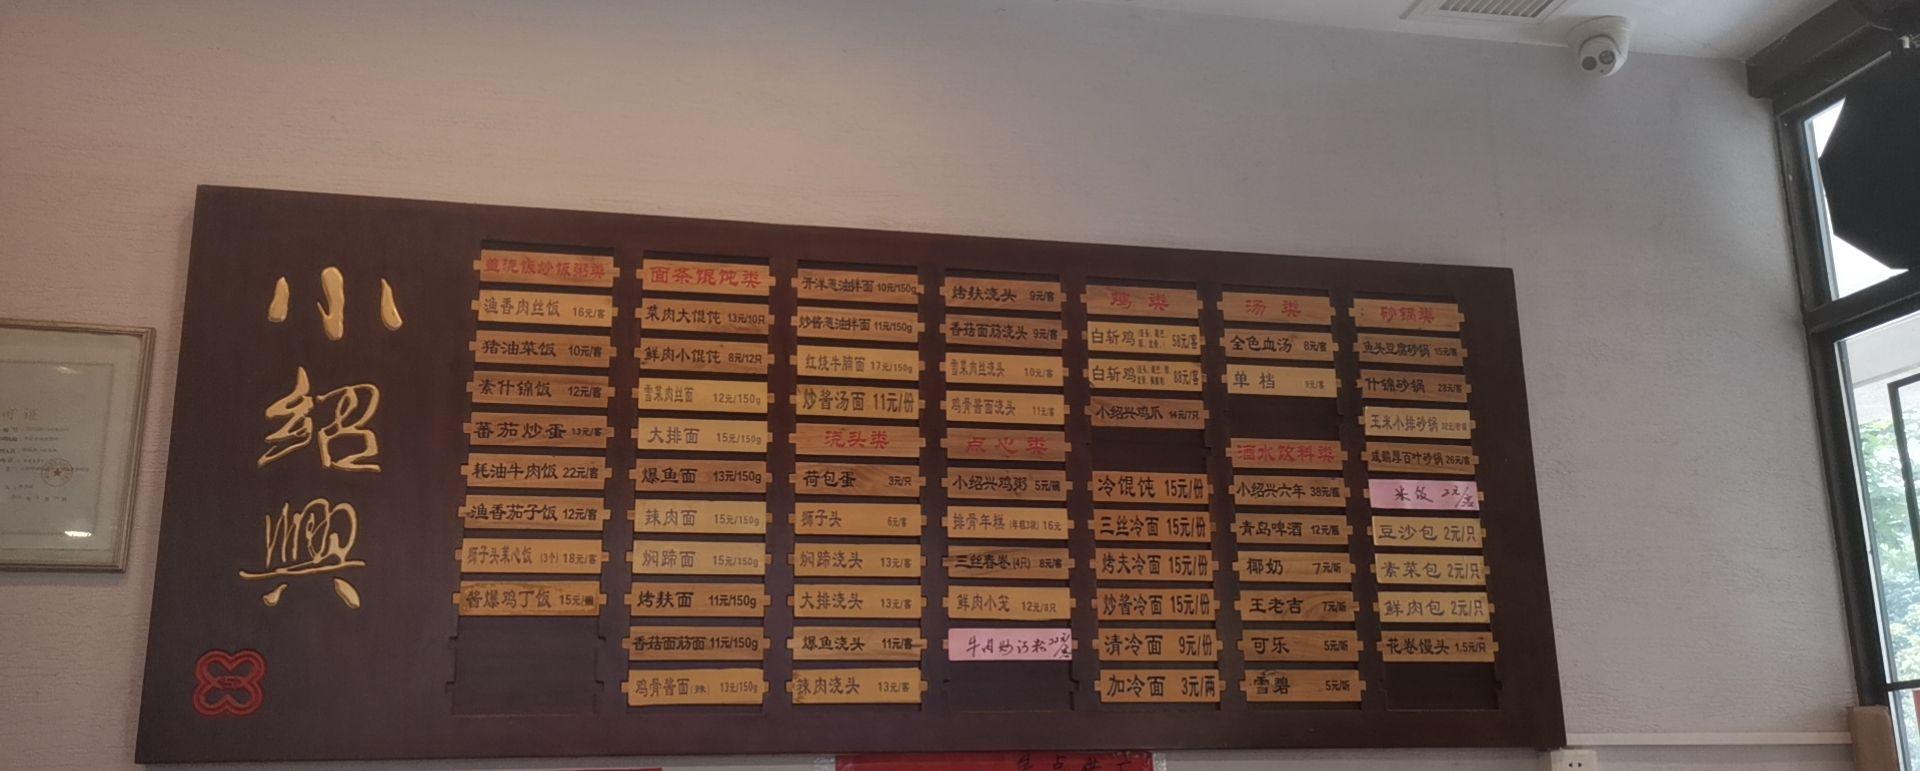 小紹興
盖浇饭炒饭粥类
渔香肉丝饭 16元/客
猪油菜饭 10元/客
素什锦饭 12元/客
蕃茄炒蛋 13元/客
耗油牛肉饭 22元/客
渔香茄子饭 12元/客
狮子头菜心饭 (3个) 18元/客
酱爆鸡丁饭 15元/碗
面条馄饨类
菜肉大馄饨 13元/10只
鲜肉小馄饨 8元/12只
雪菜肉丝面 12元/150g
大排面 15元/150g
爆鱼面 13元/150g
辣肉面 15元/150g
焖蹄面 15元/150g
烤麸面 11元/150g
香菇面筋面 11元/150g
鸡骨酱面(辣) 13元/150g
开洋葱油拌面 10元/150g
炒酱葱油拌面 11元/150g
红烧牛腩面 17元/150g
炒酱汤面 11元/份
浇头类
荷包蛋 3元/只
狮子头 6元/客
焖蹄浇头 13元/客
大排浇头 13元/客
爆鱼浇头 11元/客
辣肉浇头 13元/客
烤麸浇头 9元/客
香菇面筋浇头 9元/客
雪菜肉丝浇头 10元/客
鸡骨酱面浇头 11元/客
点心类
小绍兴鸡粥 5元/碗
排骨年糕 16元
三丝春卷(4只) 8元/客
鲜肉小笼 12元/8只
鸡类
白斩鸡 58元/客
白斩鸡 88元/客
小绍兴鸡爪 14元/7只
冷馄饨 15元/份
三丝冷面 15元/份
烤夫冷面 15元/份
炒酱冷面 15元/份
清冷面 9元/份
加冷面 3元/两
汤类
全色血汤 8元/客
单档 9元/客
酒水饮料类
小绍兴六年 38元/瓶
青岛啤酒 12元/瓶
椰奶 7元/听
王老吉 7元/听
可乐 5元/听
雪碧 5元/听
砂锅类
鱼头豆腐砂锅 15元/客
什锦砂锅 28元/客
玉米小排砂锅
咸鹅厚百叶砂锅 26元/客
米饭 2元/客
豆沙包 2元/只
素菜包 2元/只
鲜肉包 2元/只
花卷馒头 1.5元/只